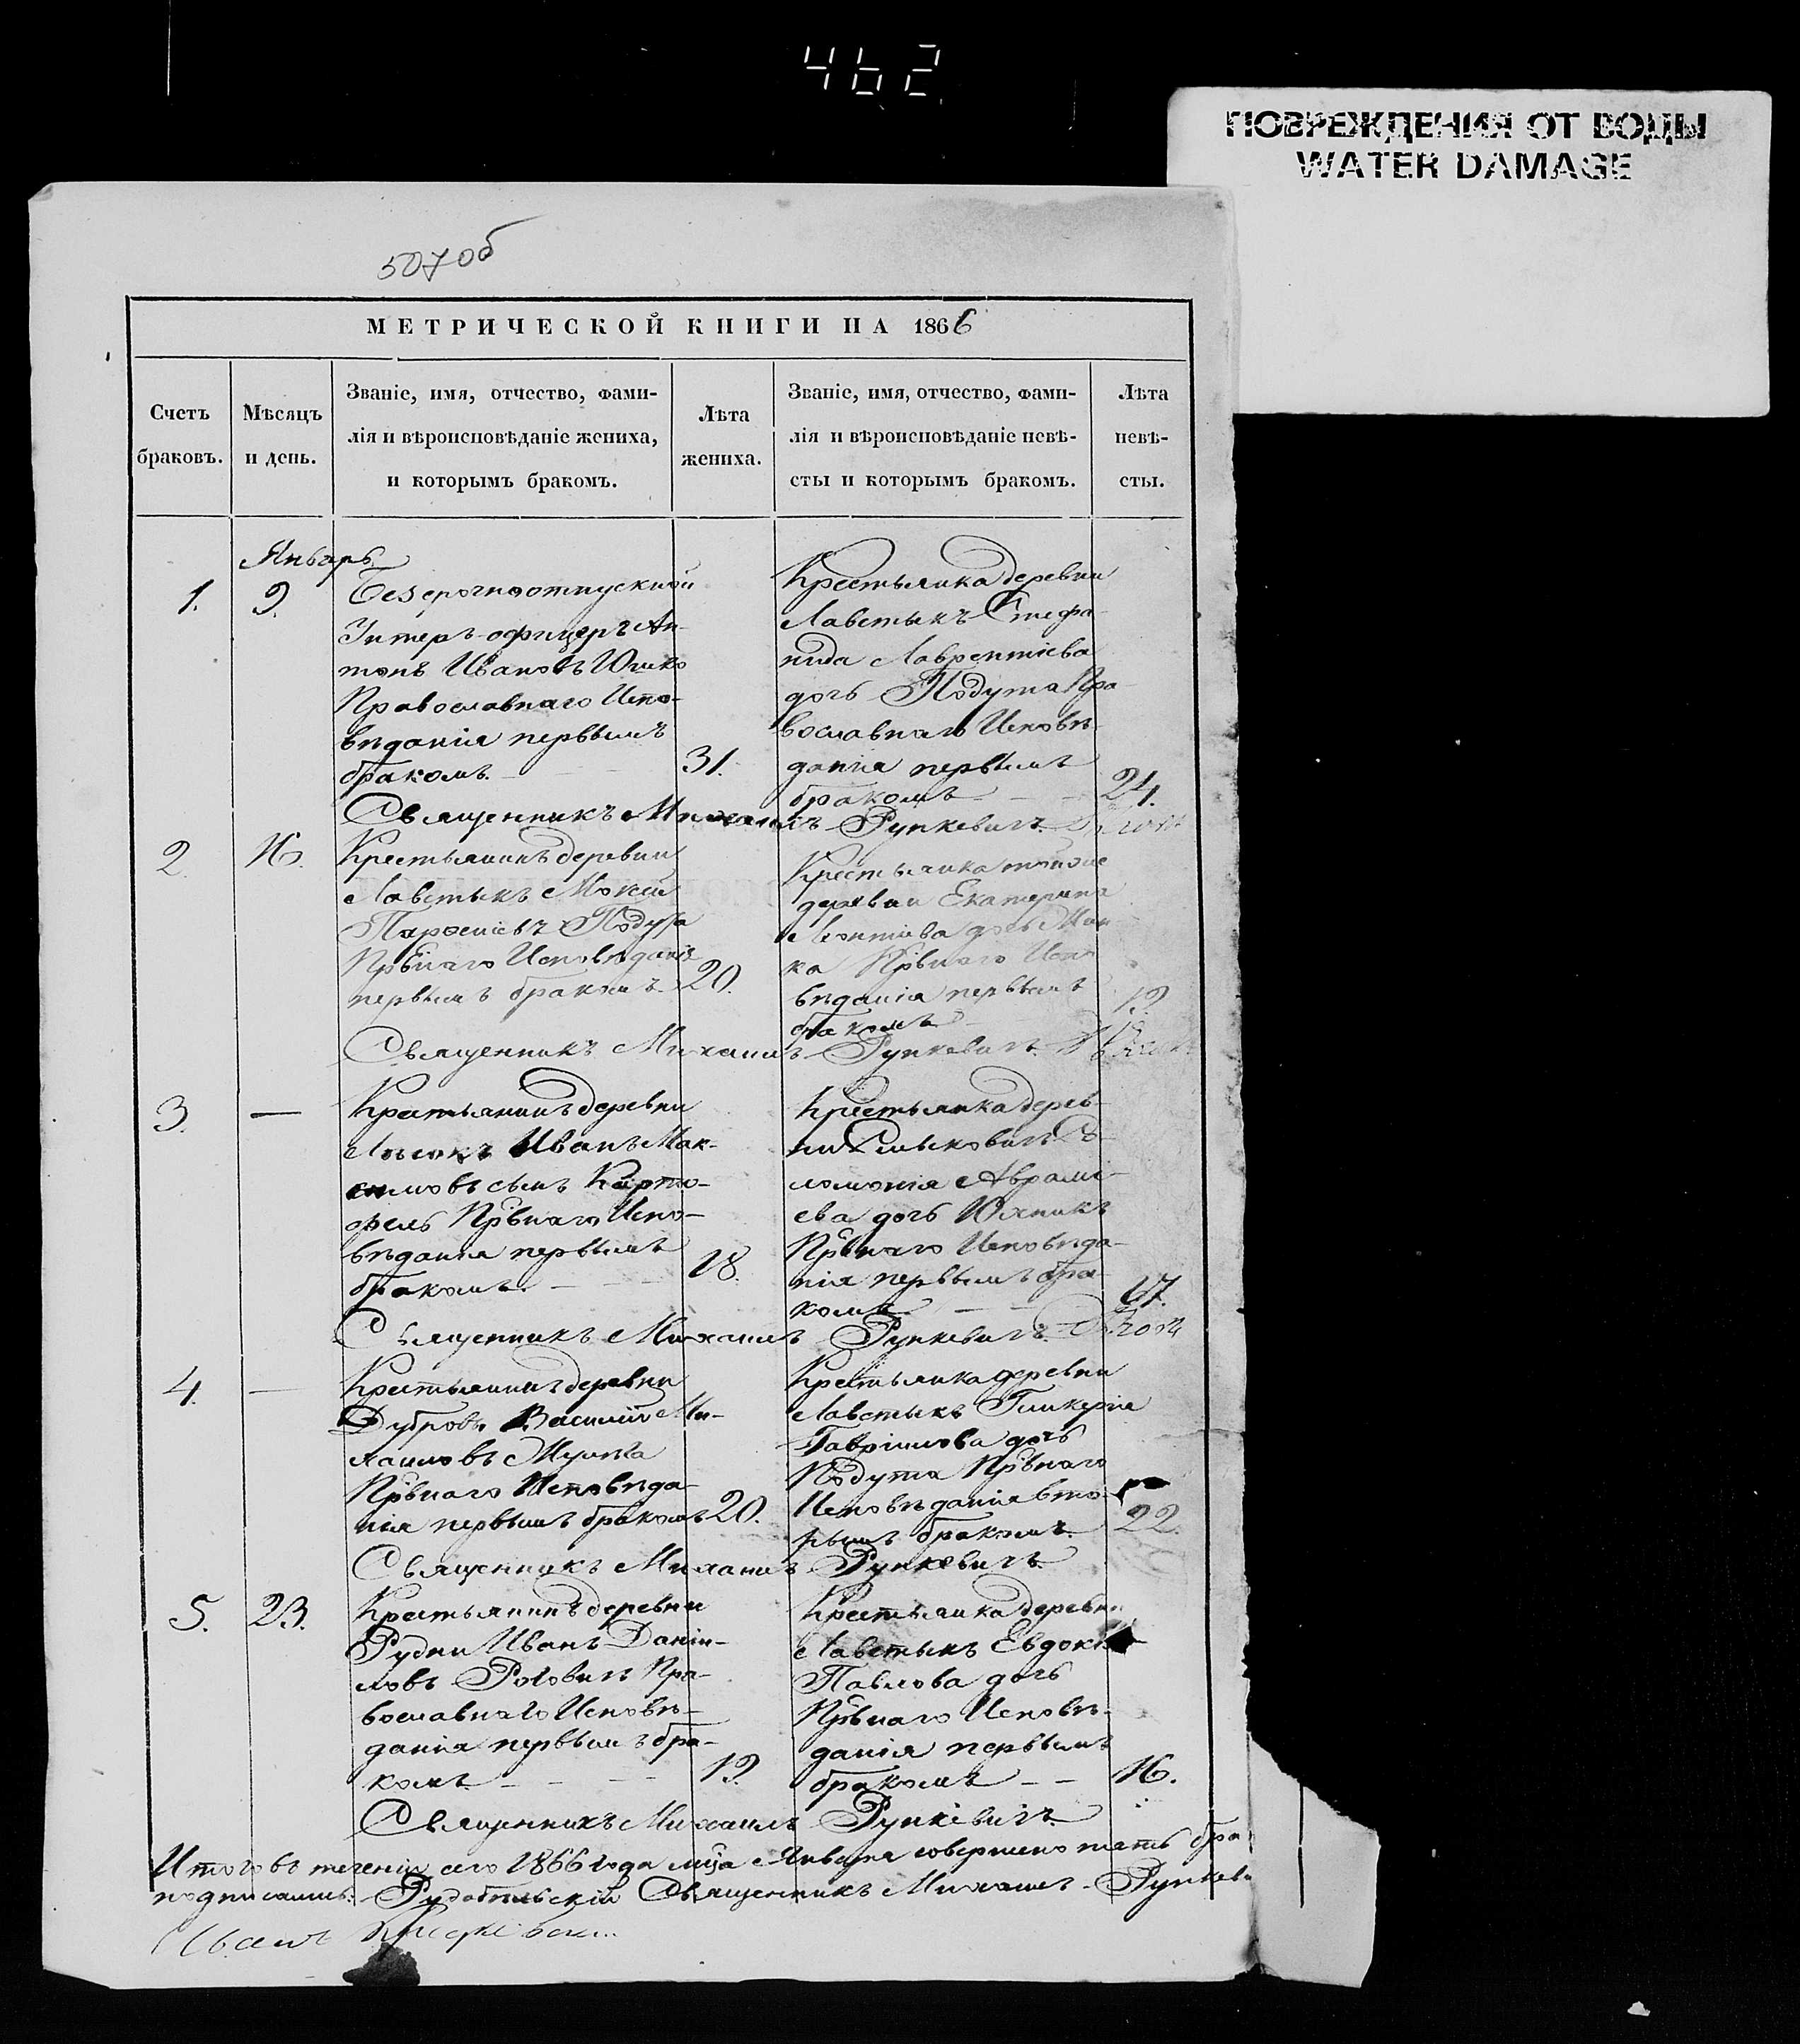 462
ПОВРЕЖДЕНИЯ ОТ ВОДЫ
WATER DAMAGE
507об
МЕТРИЧЕСКОЙ КНИГИ НА 1866
Счетъ браковъ.
Мѣсяцъ и день.
Званіе, имя, отчество, фами-
лія и вѣроисповѣданіе жениха,
и которымъ бракомъ.
Лѣта жениха.
Званіе, имя, отчество, фами-
лія и вѣроисповѣданіе невѣ-
сты и которымъ бракомъ.
Лѣта
невѣ-
сты.
Январь
1. 9.
Безсрочноотпускной
Унтеръ-офицеръ Ан-
тонъ Ивановъ Юшко
Православнаго Испо-
вѣданія первымъ
бракомъ. 31.
Крестьянка деревни
Лавстыкъ Стефа-
нида Лаврентіева
дочь Подута Пра-
вославнаго Исповѣ-
данія первымъ
бракомъ 24.
Священникъ Михаилъ Рункевичъ.
2. 16.
Крестьянинъ деревни
Лавстыкъ Мокей
Подута
Првнаго Исповѣданія
первымъ бракомъ 20.
Крестьянка тойже
деревни Екатерина
Леонтіева дочь
ка Првнаго Испо
вѣданія первымъ
бракомъ 19.
Священникъ Михаилъ Рункевичъ.
3. —
Крестьянинъ деревни
Иванъ Мак-
симовъ сынъ Карто-
фель Првнаго Испо-
вѣданія первымъ
бракомъ. 18.
Крестьянка дерев-
ни Со-
ломонія Аврамі-
ева дочь Юхникъ
Првнаго Исповѣда-
нія первымъ бра-
комъ 17.
Священникъ Михаилъ Рункевичъ.
4. —
Крестьянинъ деревни
Дубровы Василій Ми-
хаиловъ
Првнаго Исповѣда-
нія первымъ бракомъ 20.
Крестьянка деревни
Лавстыкъ Гликерія
Гавріилова дочь
Подута Првнаго
Исповѣданія вто-
рымъ бракомъ. 22.
Священникъ Михаилъ Рункевичъ.
5. 23.
Крестьянинъ деревни
Рудни Иванъ Даніи-
ловъ Роговичъ Пра-
вославнаго Исповѣ-
данія первымъ бра-
комъ 19.
Крестьянка деревни
Лавстыкъ
Павлова дочь
Првнаго Исповѣ-
данія первымъ
бракомъ 16.
Священникъ Михаилъ Рункевичъ.
Итого въ теченіи сего 1866 года мца Января совершено пять бра
подписались: Рудобѣльскій Священникъ Михаилъ Рункеви